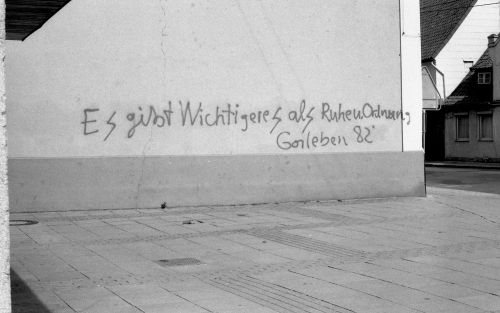 Es gibt Wichtigeres als Ruhe u Ordnung
Gorleben 82'